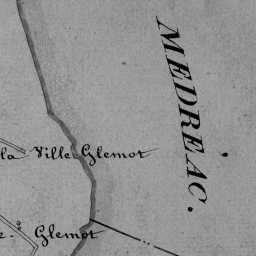 MEDRÉAC.
la Ville Glemot
Glemot